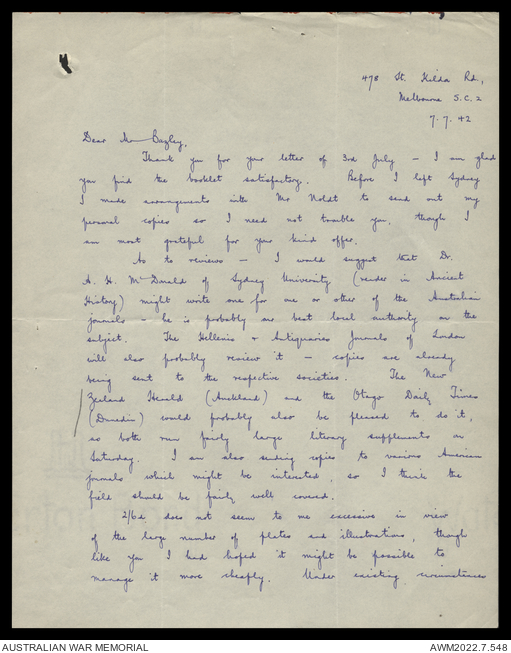 478 St. Kilda Rd,
Melbourne S.C.2
7.7.42
Dear Mr Bazley,
Thank you for your letter of 3rd July – I am glad
you find the booklet satisfactory. Before I left Sydney
I made arrangements with Mr Noldt to send out my
personal copies so I need not trouble you, though I
am most grateful for your kind offer.
As to reviews – I would suggest that Dr.
A. H. McDonald of Sydney University (reader in Ancient
History) might write one for one or other of the Australian
journals – he is probably our best local authority on the
subject. The Hellenic & Antiquaries Journals of London
will also probably review it – copies are already
being sent to the respective societies. The New
Zealand Herald (Auckland) and the Otago Daily Times
(Dunedin) would probably also be pleased to do it,
as both run fairly large literary supplements on
Saturday. I am also sending copies to various American
journals which might be interested, so I think the
field should be fairly well covered.
2/6d does not seem to me excessive in view
of the large number of plates and illustrations, though
like you I had hoped it might be possible to
manage it more cheaply. Under existing circumstances
AUSTRALIAN WAR MEMORIAL
AWM2022.7.548